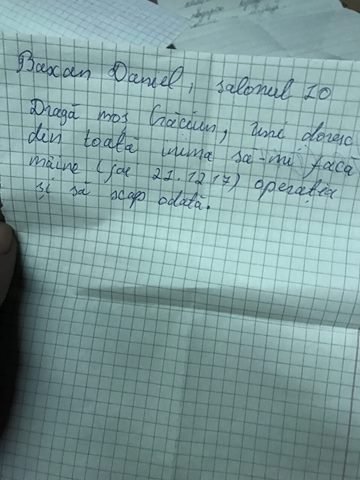 Baxan Daniel, salonul 10
Dragă moș Crăciun, îmi doresc
din toată inima să-mi facă
mâine (joi 21.12.17) operația
și să scap odată.